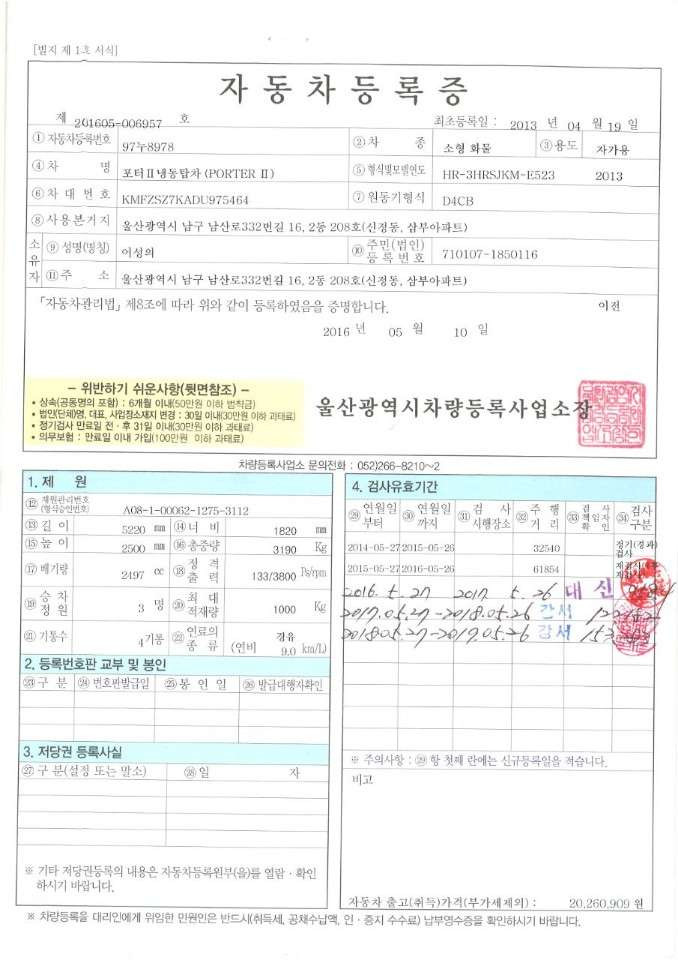 [별지 제 1호 서식]
자동차등록증
제 201605-006957 호 최초등록일 : 2013 년 04 월 19 일
① 자동차등록번호 97누8978 ② 차 종 소형 화물 ③ 용도 자가용
④ 차 명 포터Ⅱ냉동탑차 (PORTER Ⅱ) ⑤ 형식및모델연도 HR-3HRSJKM-E523 2013
⑥ 차 대 번 호 KMFZSZ7KADU975464 ⑦ 원동기형식 D4CB
⑧ 사용본거지 울산광역시 남구 남산로332번길 16, 2동 208호(신정동, 삼부아파트)
소유자 ⑨ 성명(명칭) 이성의 ⑩ 주민(법인)등록번호 710107-1850116
⑪ 주 소 울산광역시 남구 남산로332번길 16, 2동 208호(신정동, 삼부아파트)
「자동차관리법」 제8조에 따라 위와 같이 등록하였음을 증명합니다. 이전
2016 년 05 월 10 일
- 위반하기 쉬운사항(뒷면참조) -
• 상속(공동명의 포함) : 6개월 이내(50만원 이하 범칙금)
• 법인(단체)명, 대표, 사업장소재지 변경 : 30일 이내(30만원 이하 과태료)
• 정기검사 만료일 전 · 후 31일 이내(30만원 이하 과태료)
• 의무보험 : 만료일 이내 가입(100만원 이하 과태료)
울산광역시차량등록사업소장
차량등록사업소 문의전화 : 052)266-8210~2
1. 제 원
⑫ 제원관리번호(형식승인번호) A08-1-00062-1275-3112
⑬ 길 이 5220 mm ⑭ 너 비 1820 mm
⑮ 높 이 2500 mm ⑯ 총중량 3190 Kg
⑰ 배기량 2497 cc ⑱ 정격출력 133/3800 Ps/rpm
⑲ 승차정원 3 명 ⑳ 최대적재량 1000 Kg
㉑ 기통수 4기통 ㉒ 연료의종류 경유 (연비 9.0 km/L)
2. 등록번호판 교부 및 봉인
㉓ 구 분 ㉔ 번호판발급일 ㉕ 봉 인 일 ㉖ 발급대행자확인
3. 저당권 등록사실
㉗ 구 분(설정 또는 말소) ㉘ 일 자
※ 기타 저당권등록의 내용은 자동차등록원부(을)를 열람 · 확인
하시기 바랍니다.
4. 검사유효기간
㉙ 연월일부터 ㉚ 연월일까지 ㉛ 검 사 시행장소 ㉜ 주 행 거 리 ㉝ 검 사 책임자 확 인 ㉞ 검사구분
2014-05-27 2015-05-26 32540 정기(경과)검사
2015-05-27 2016-05-26 61854
2016. 5. 27 2017. 5. 26 대 신
2017.05.27-2018.05.26 강서
2018.05.27-2019.05.26 강서
※ 주의사항 : ㉙ 항 첫째 란에는 신규등록일을 적습니다.
비고
자동차 출고(취득)가격(부가세제외) : 20,260,909 원
※ 차량등록을 대리인에게 위임한 민원인은 반드시(취득세, 공채수납액, 인 · 증지 수수료) 납부영수증을 확인하시기 바랍니다.